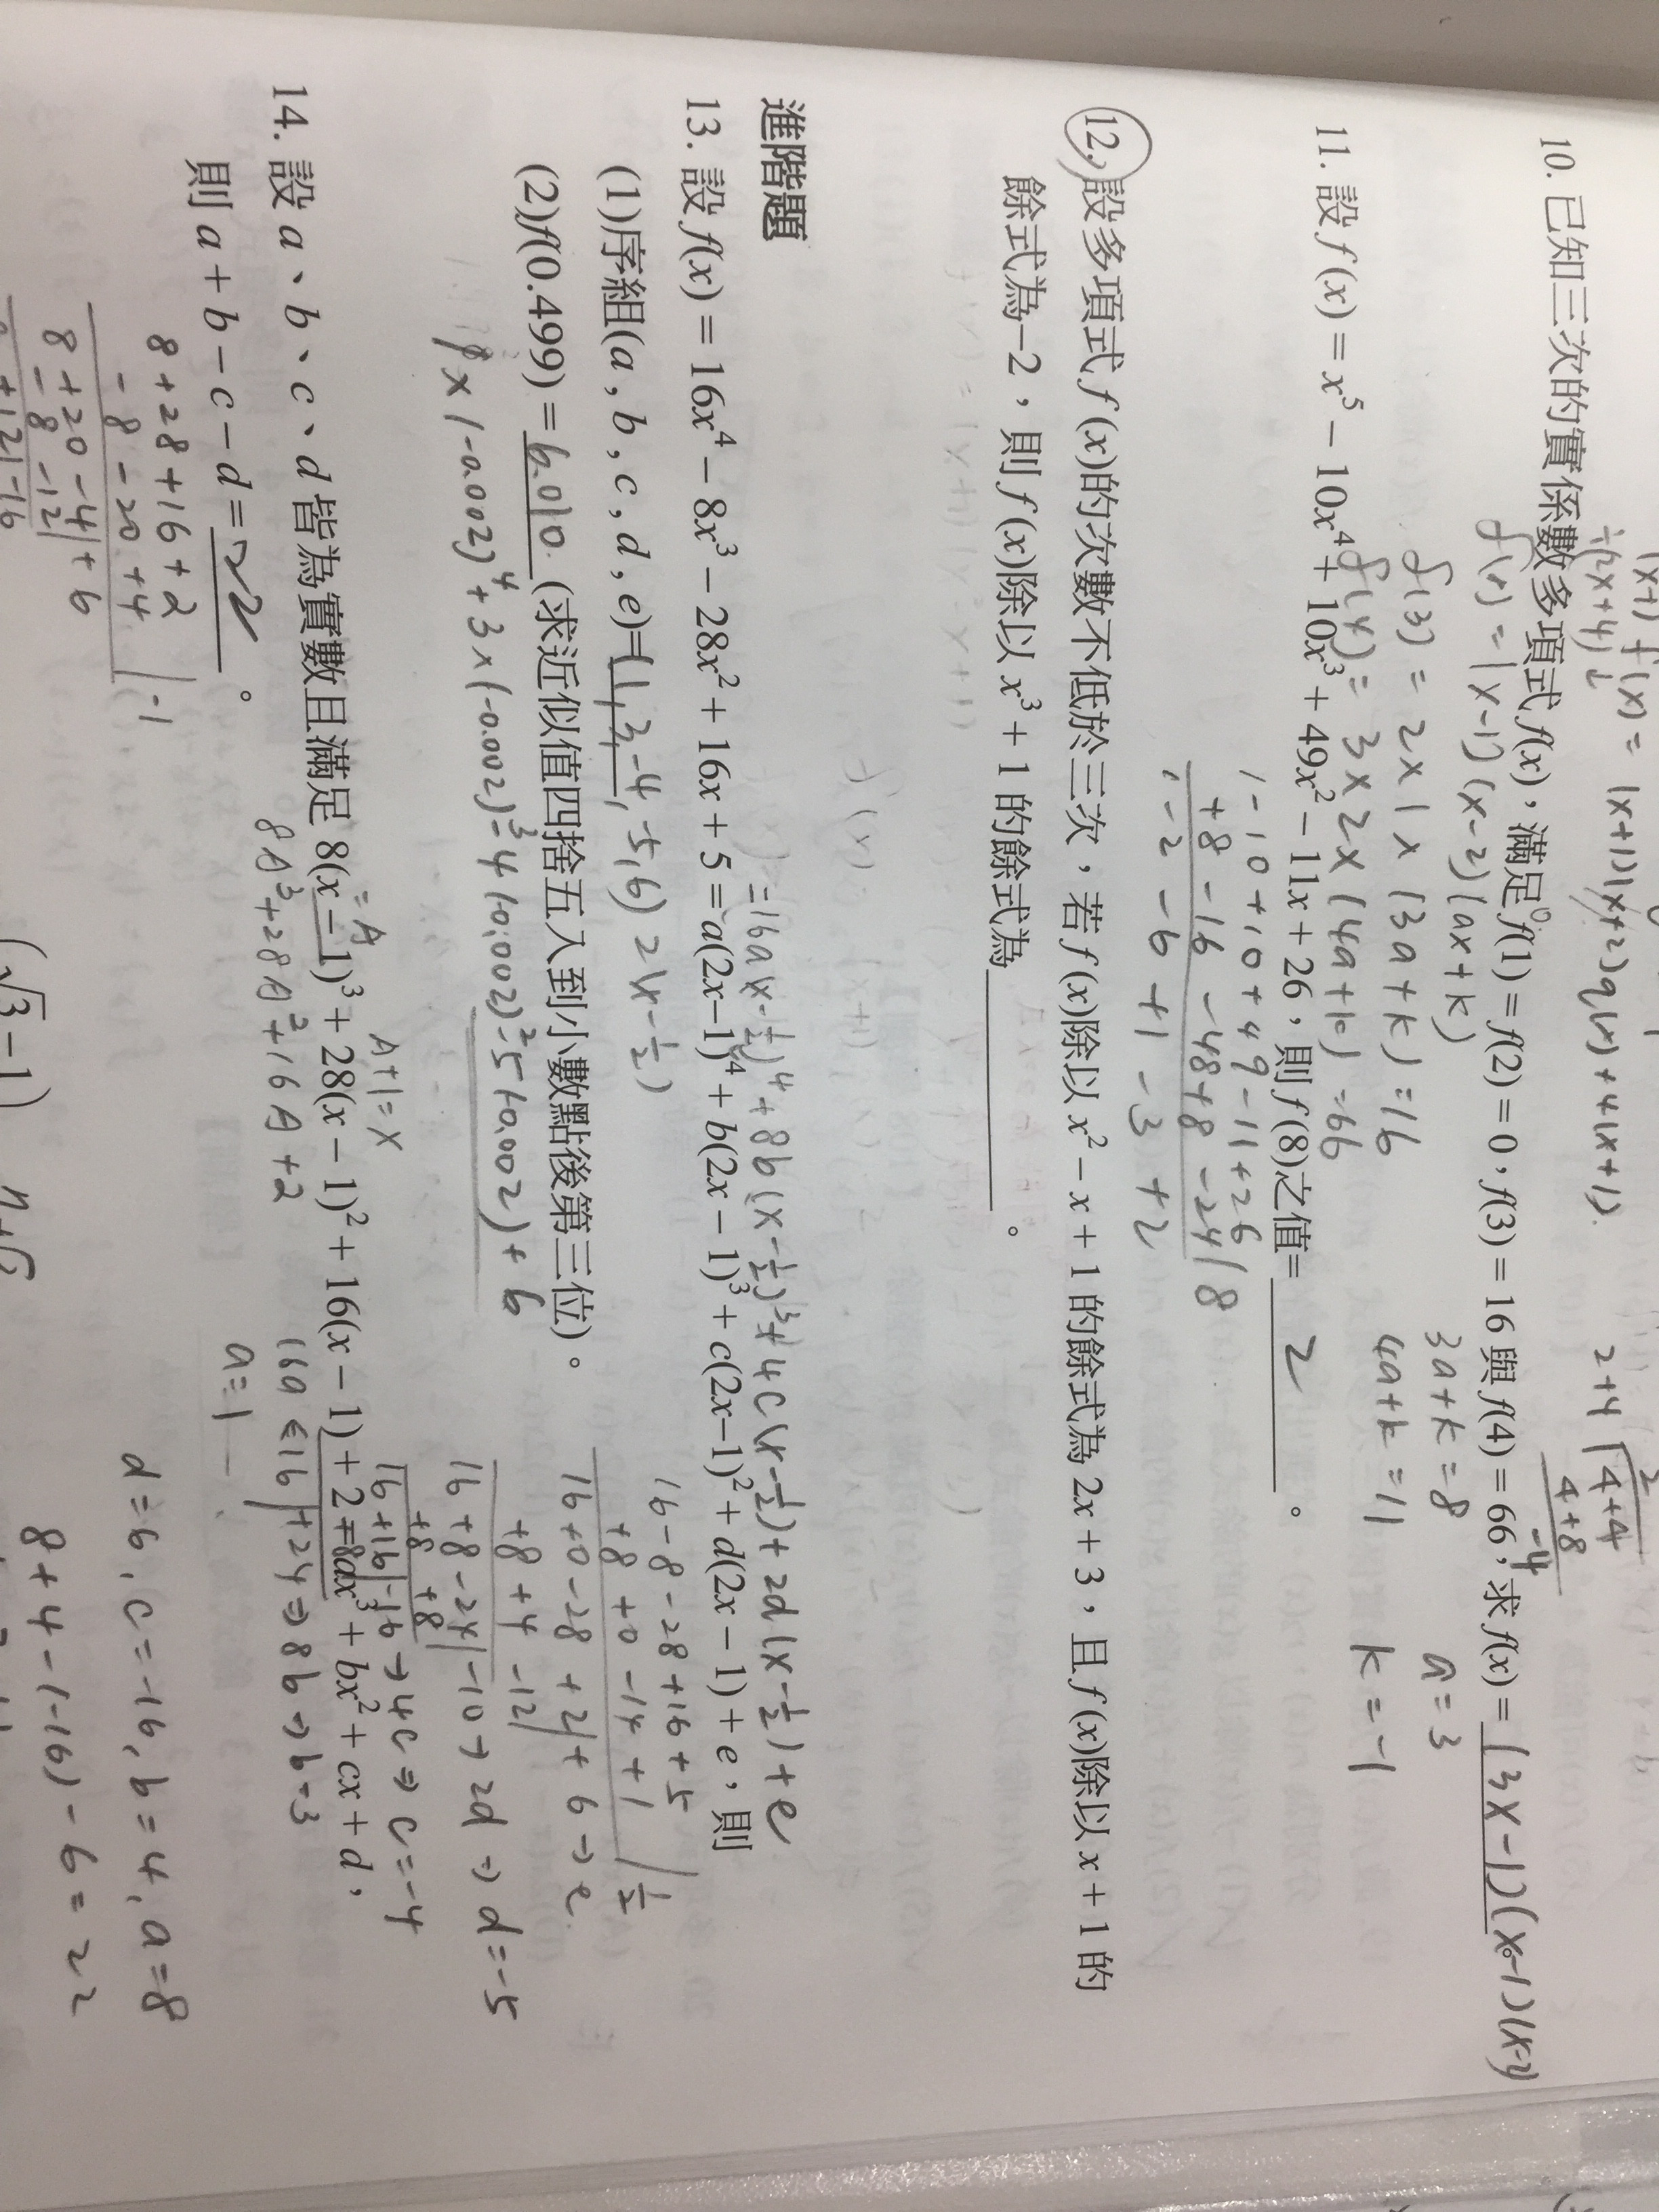 (x+1) f(x) = (x+1)(x+2)q(x) + 4(x+1).
÷(2x+4)
2+4 4+4
4+8
-4
10. 已知三次的實係數多項式 f(x), 滿足 f(1) = f(2) = 0, f(3) = 16 與 f(4) = 66, 求 f(x) = (3x-1)(x-1)(x-2)
f(x) = (x-1)(x-2)(ax+k)
f(3) = 2×1×(3a+k) = 16
f(4) = 3×2×(4a+k) = 66
3a+k=8
4a+k=11
a=3
k=-1
11. 設 f(x) = x⁵ − 10x⁴ + 10x³ + 49x² − 11x + 26,則 f(8)之值= 2 。
1-10+10+49-11+26
+8-16-48+8-24 | 8
1-2-6+1-3+2
12. 設多項式 f(x)的次數不低於三次,若 f(x)除以 x² − x + 1 的餘式為 2x + 3,且 f(x)除以 x + 1 的
餘式為−2,則 f(x)除以 x³ + 1 的餘式為 。
進階題
=16a(x-½)⁴+8b(x-½)³+4c(x-½)+2d(x-½)+e
13. 設 f(x) = 16x⁴ − 8x³ − 28x² + 16x + 5 = a(2x−1)⁴ + b(2x − 1)³ + c(2x−1)² + d(2x − 1) + e,則
(1)序組(a , b , c , d , e)=(1,3,-4,-5,6) 2(x-½)
(2)f(0.499) = 6.010 (求近似值四捨五入到小數點後第三位)。
1×(-0.002)⁴+3×(-0.002)³-4(-0.002)²-5(-0.002)+6
16-8-28+16+5
+8+0-14+1 | ½
16+0-28+2|+6→e
+8+4-12
16+8-24|-10→2d⇒d=-5
+8+8
16+16|-16→4c⇒c=-4
16a←16|+24⇒8b⇒b=3
a=1
14. 設 a、b、c、d 皆為實數且滿足 8(x − 1)³ + 28(x − 1)² + 16(x − 1) + 2 = 8ax³ + bx² + cx + d,
=A
A+1=x
8A³+28A²+16A+2
則 a + b − c − d = 22 。
8+28+16+2
-8-20+4 | -1
8+20-4|+6
-8-12
+12|-16
d=6, c=-16, b=4, a=8
8+4-(-16)-6=22
(√3-1)